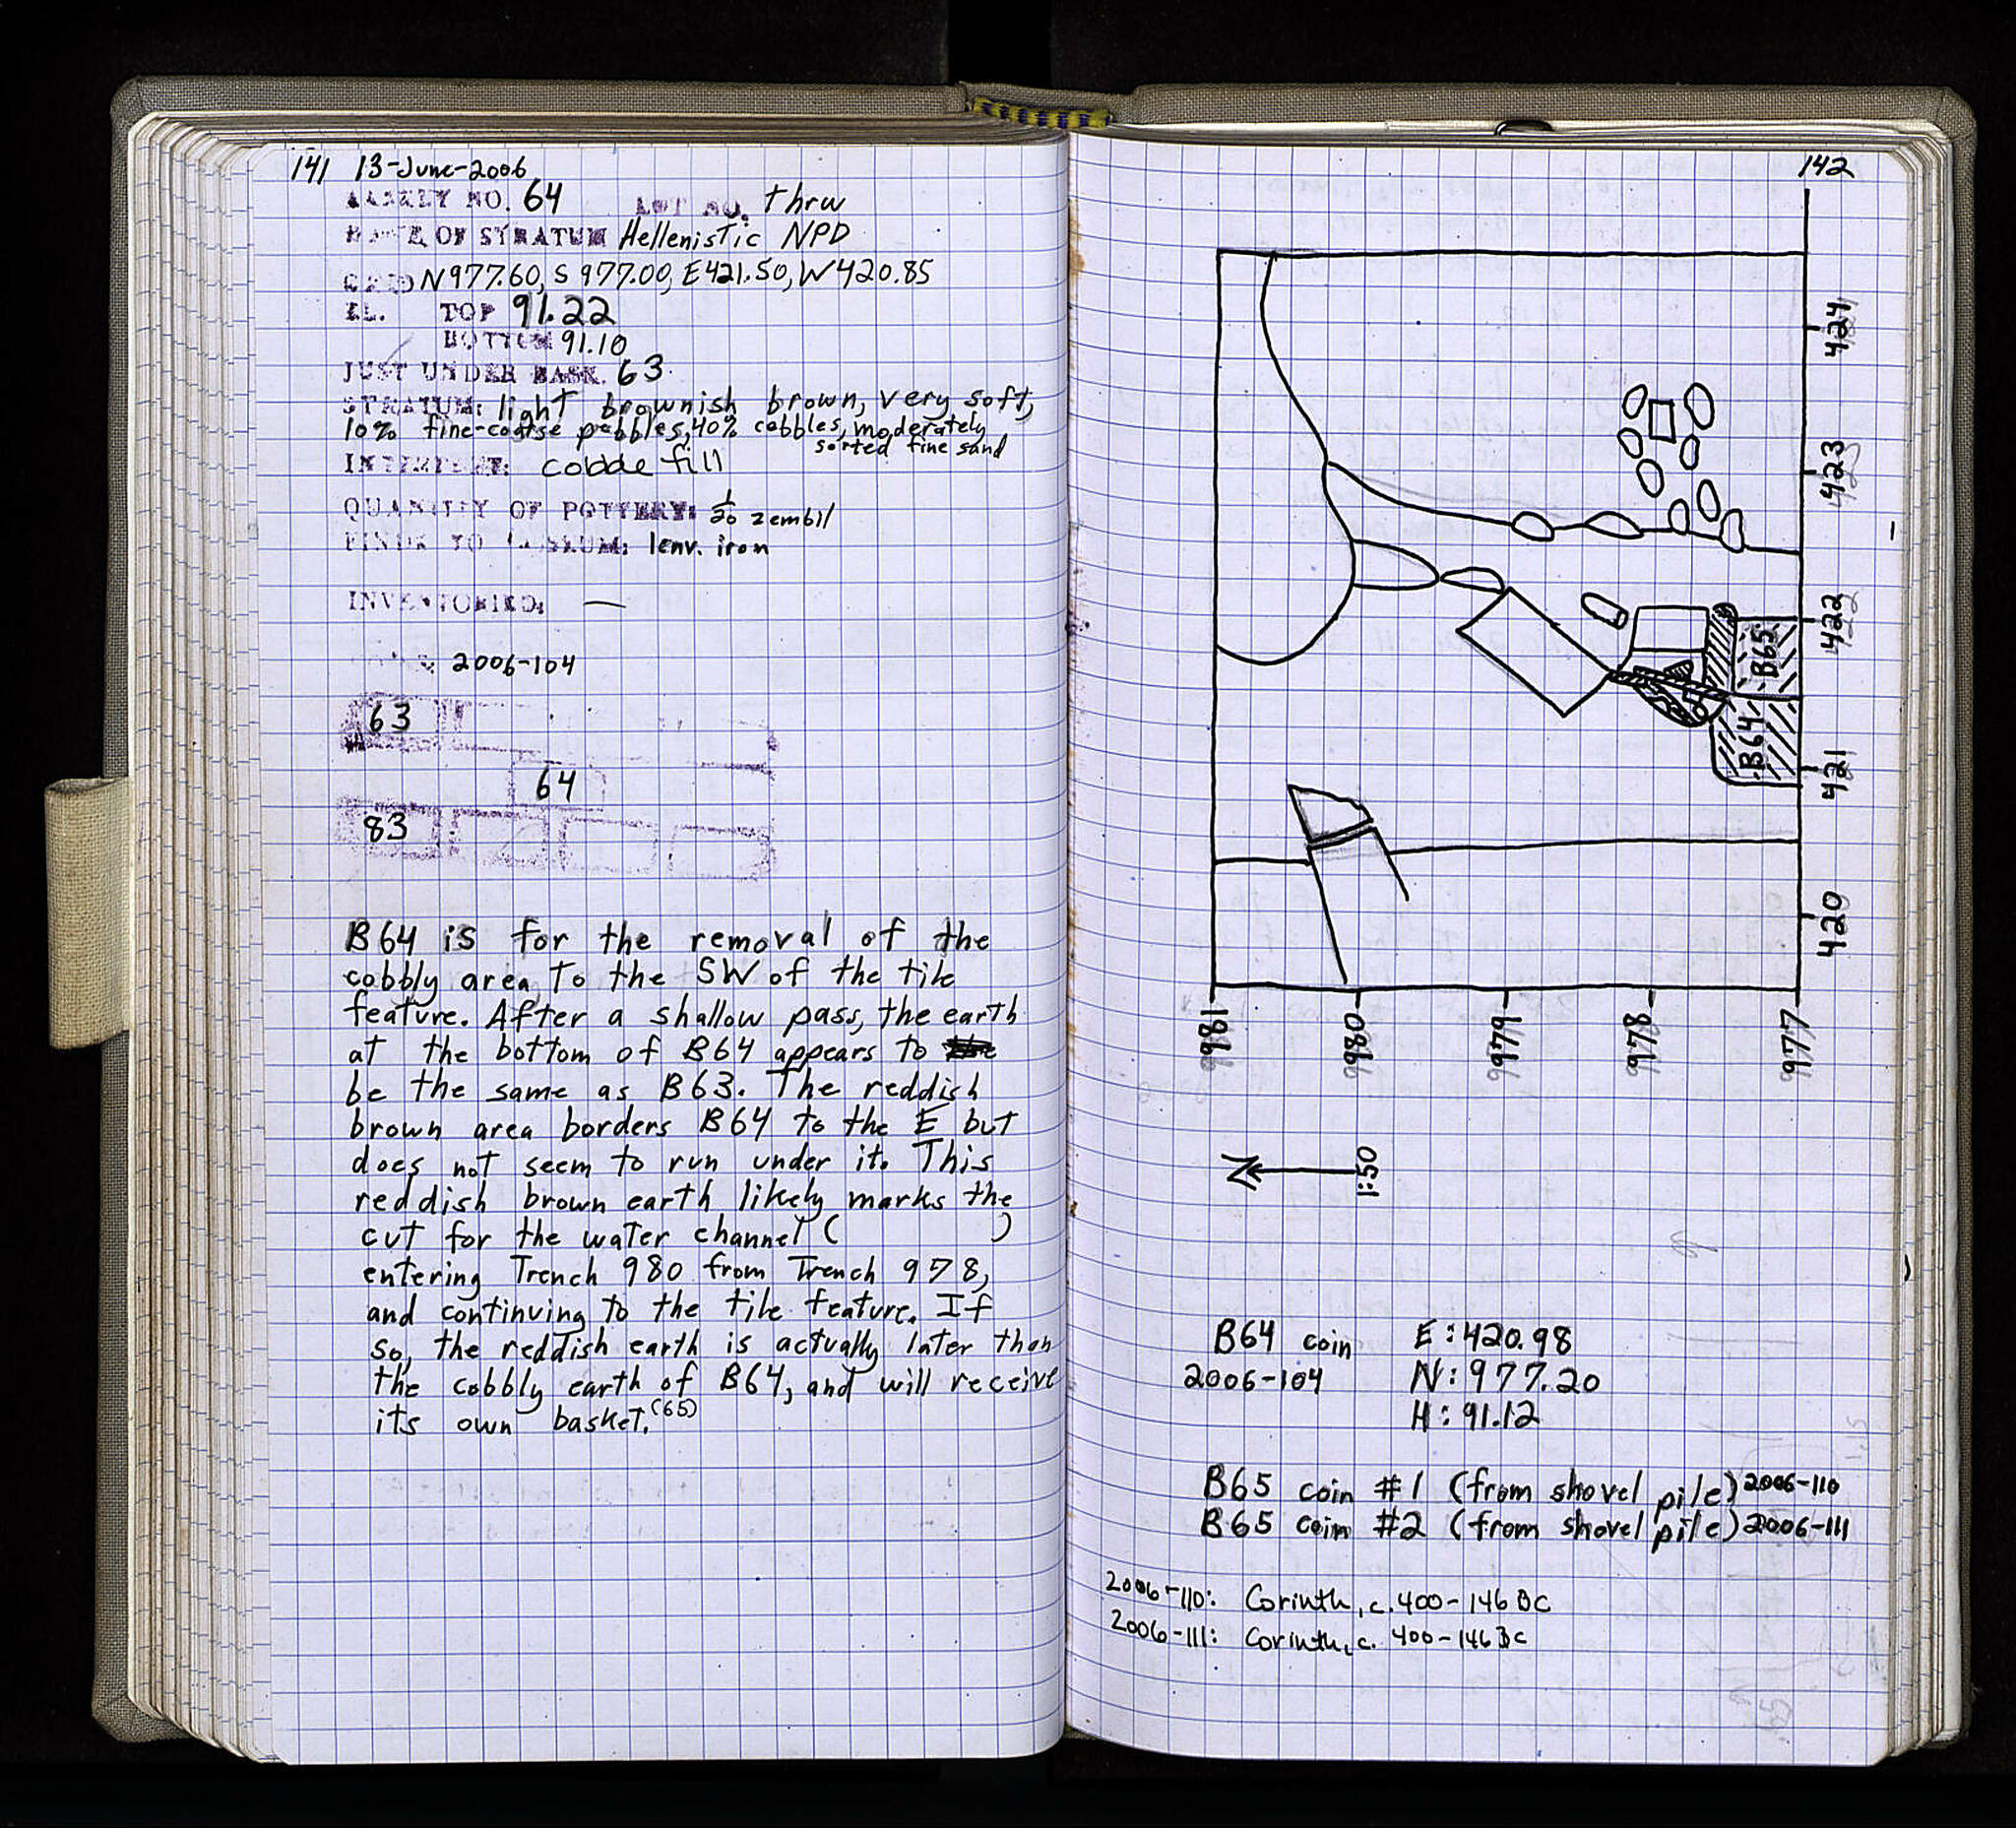 141 13-June-2006
BASKET NO. 64 LOT NO. thrw
DATE OF STRATUM Hellenistic NPD
GRID N977.60, S 977.00, E421.50, W420.85
EL. TOP 91.22
BOTTOM 91.10
JUST UNDER BASK. 63
STRATUM: light brownish brown, very soft,
10% fine-coarse pebbles, 40% cobbles, moderately
sorted fine sand
INTERPRET: cobble fill
QUANTITY OF POTTERY: 1/20 zembil
FINDS TO MUSEUM: 1env. iron
INVENTORIED: —
2006-104
63
64
83
B64 is for the removal of the
cobbly area to the SW of the tile
feature. After a shallow pass, the earth
at the bottom of B64 appears to
be the same as B63. The reddish
brown area borders B64 to the E but
does not seem to run under it. This
reddish brown earth likely marks the
cut for the water channel ( )
entering Trench 980 from Trench 978,
and continuing to the tile feature. If
so, the reddish earth is actually later than
the cobbly earth of B64, and will receive
its own basket. (65)
142
424
423
422
421
420
B65
B64
981
980
979
978
977
N
1:50
B64 coin E: 420.98
2006-104 N: 977.20
H: 91.12
B65 coin #1 (from shovel pile) 2006-110
B65 coin #2 (from shovel pile) 2006-111
2006-110: Corinth, c. 400-146 BC
2006-111: Corinth, c. 400-146 BC